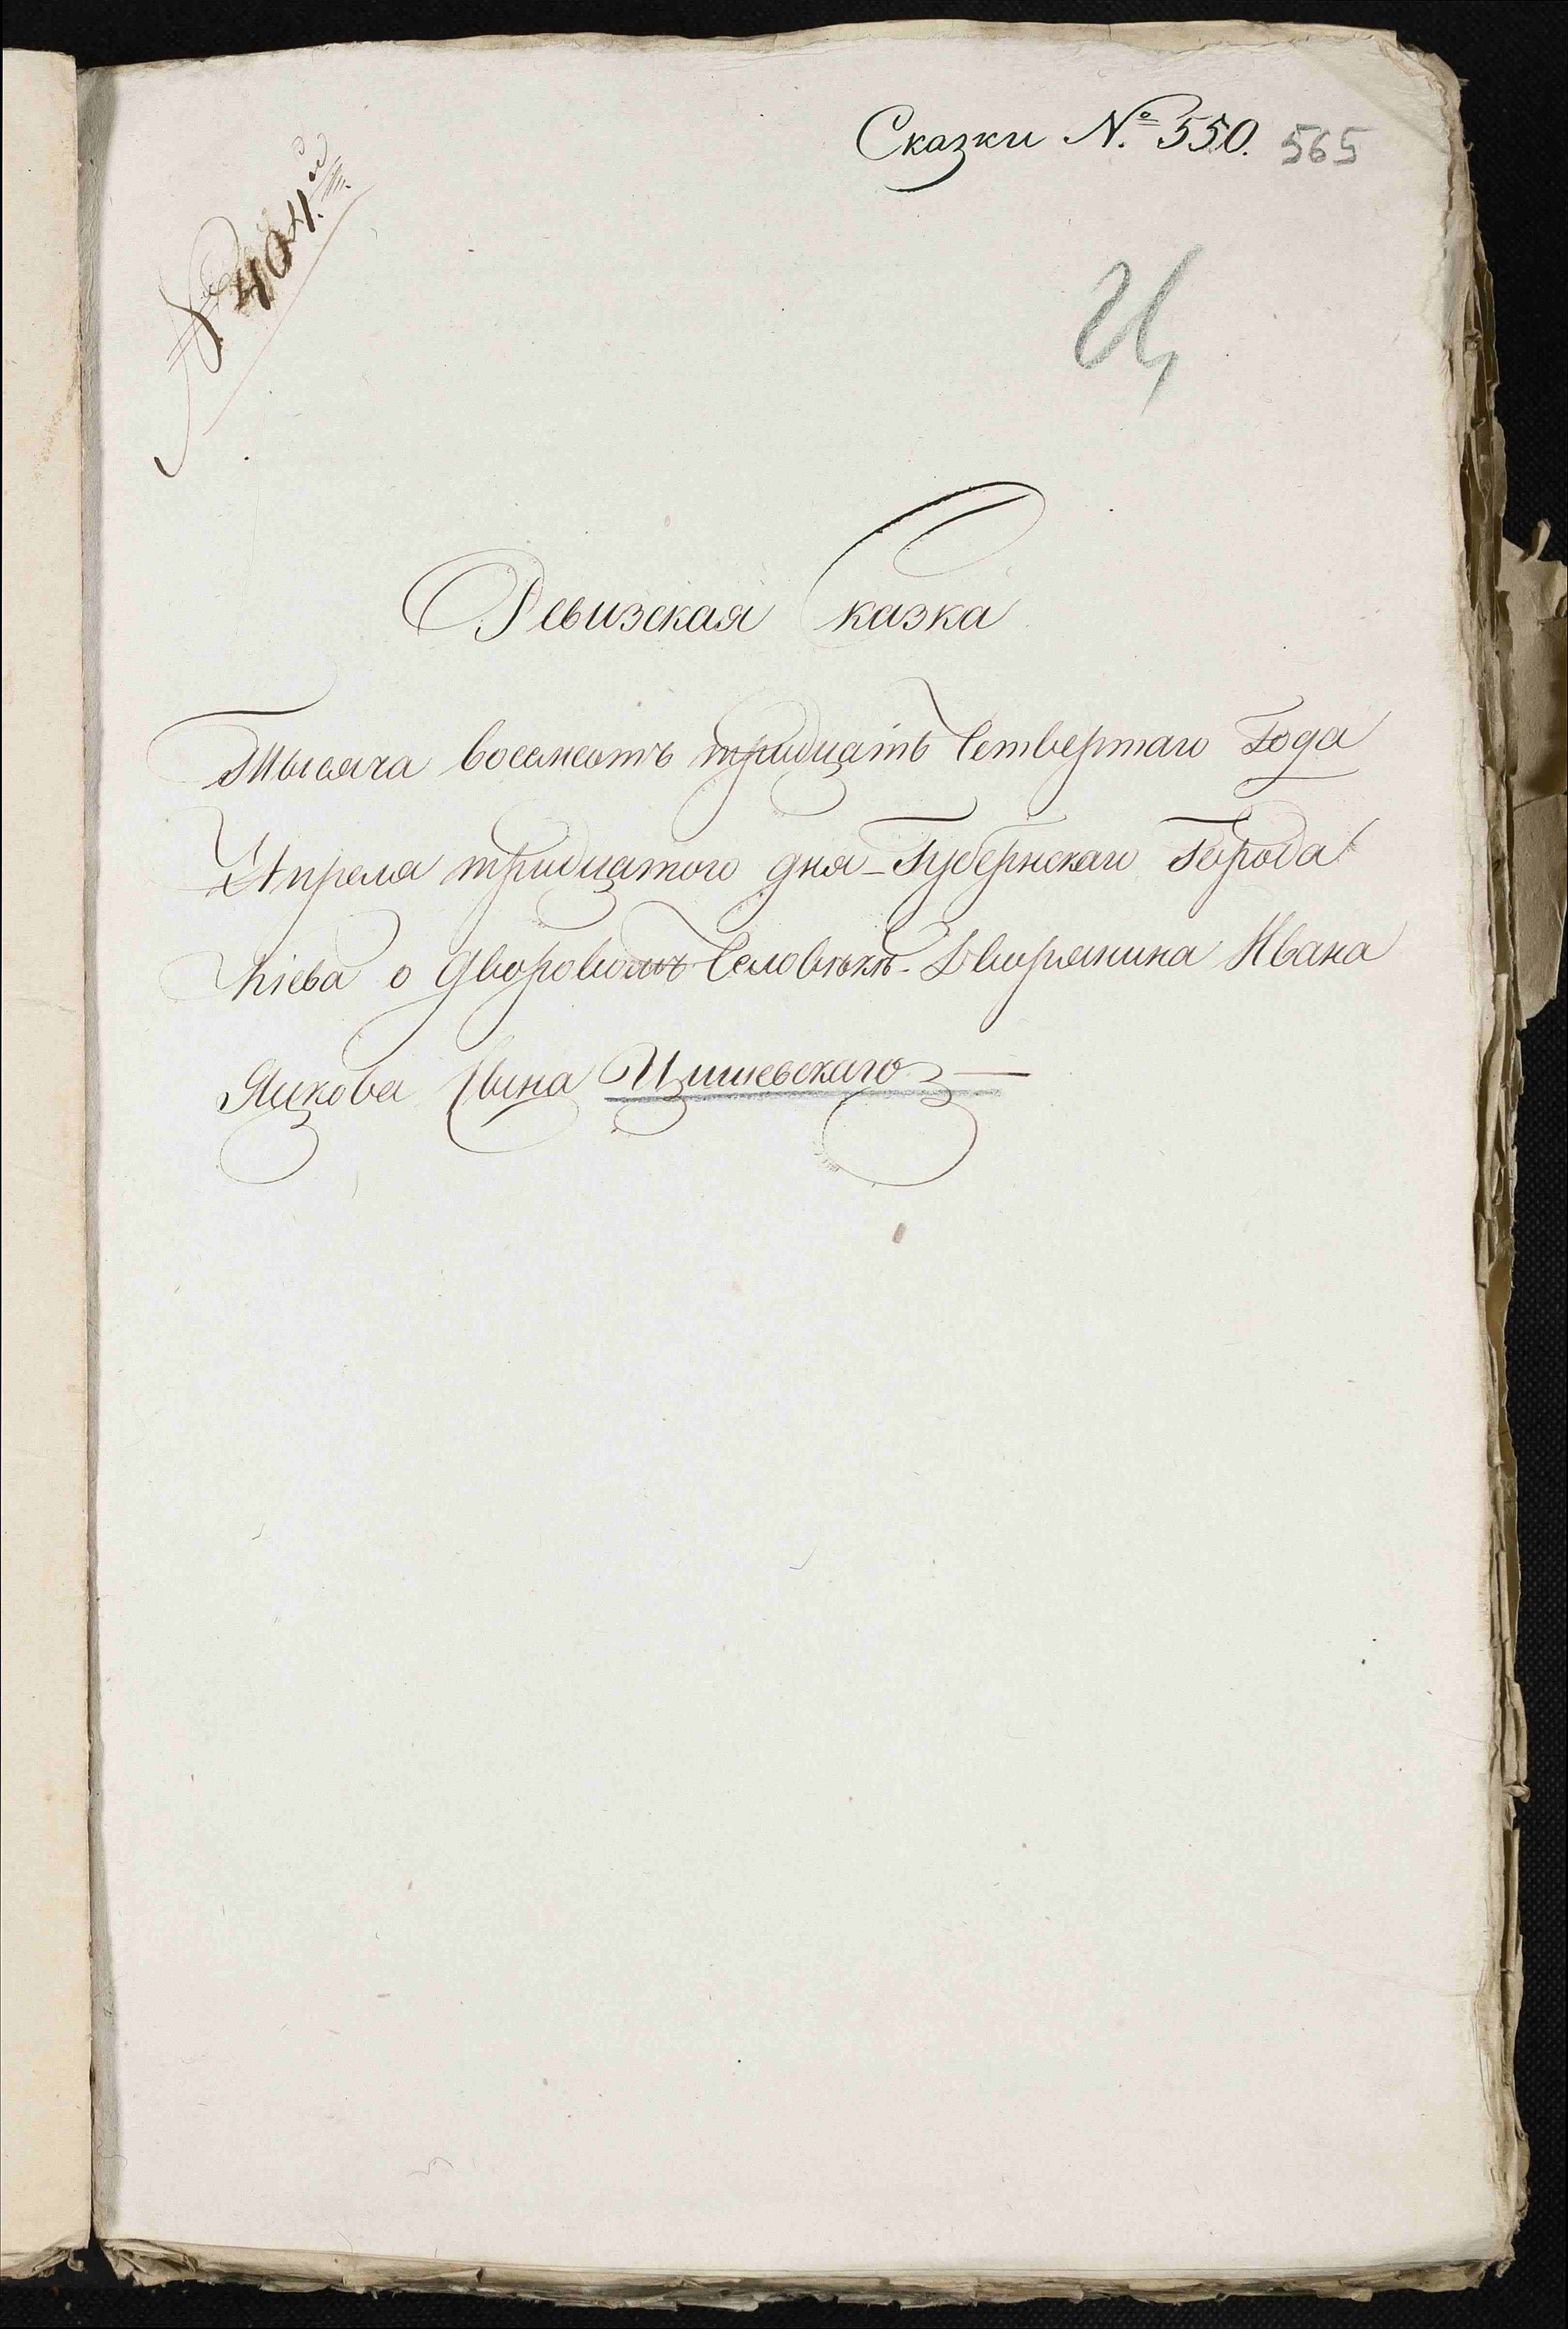 Сказки №. 550. 565
№ 404.
Ц
Ревизская Сказка
Тысяча восемсотъ тридцать Четвертаго Года
Апреля тридцатого дня Губернскаго Города
Кіева о дворовомъ Человѣкѣ Дворянина Ивана
Яцкова Сына Цишевскаго